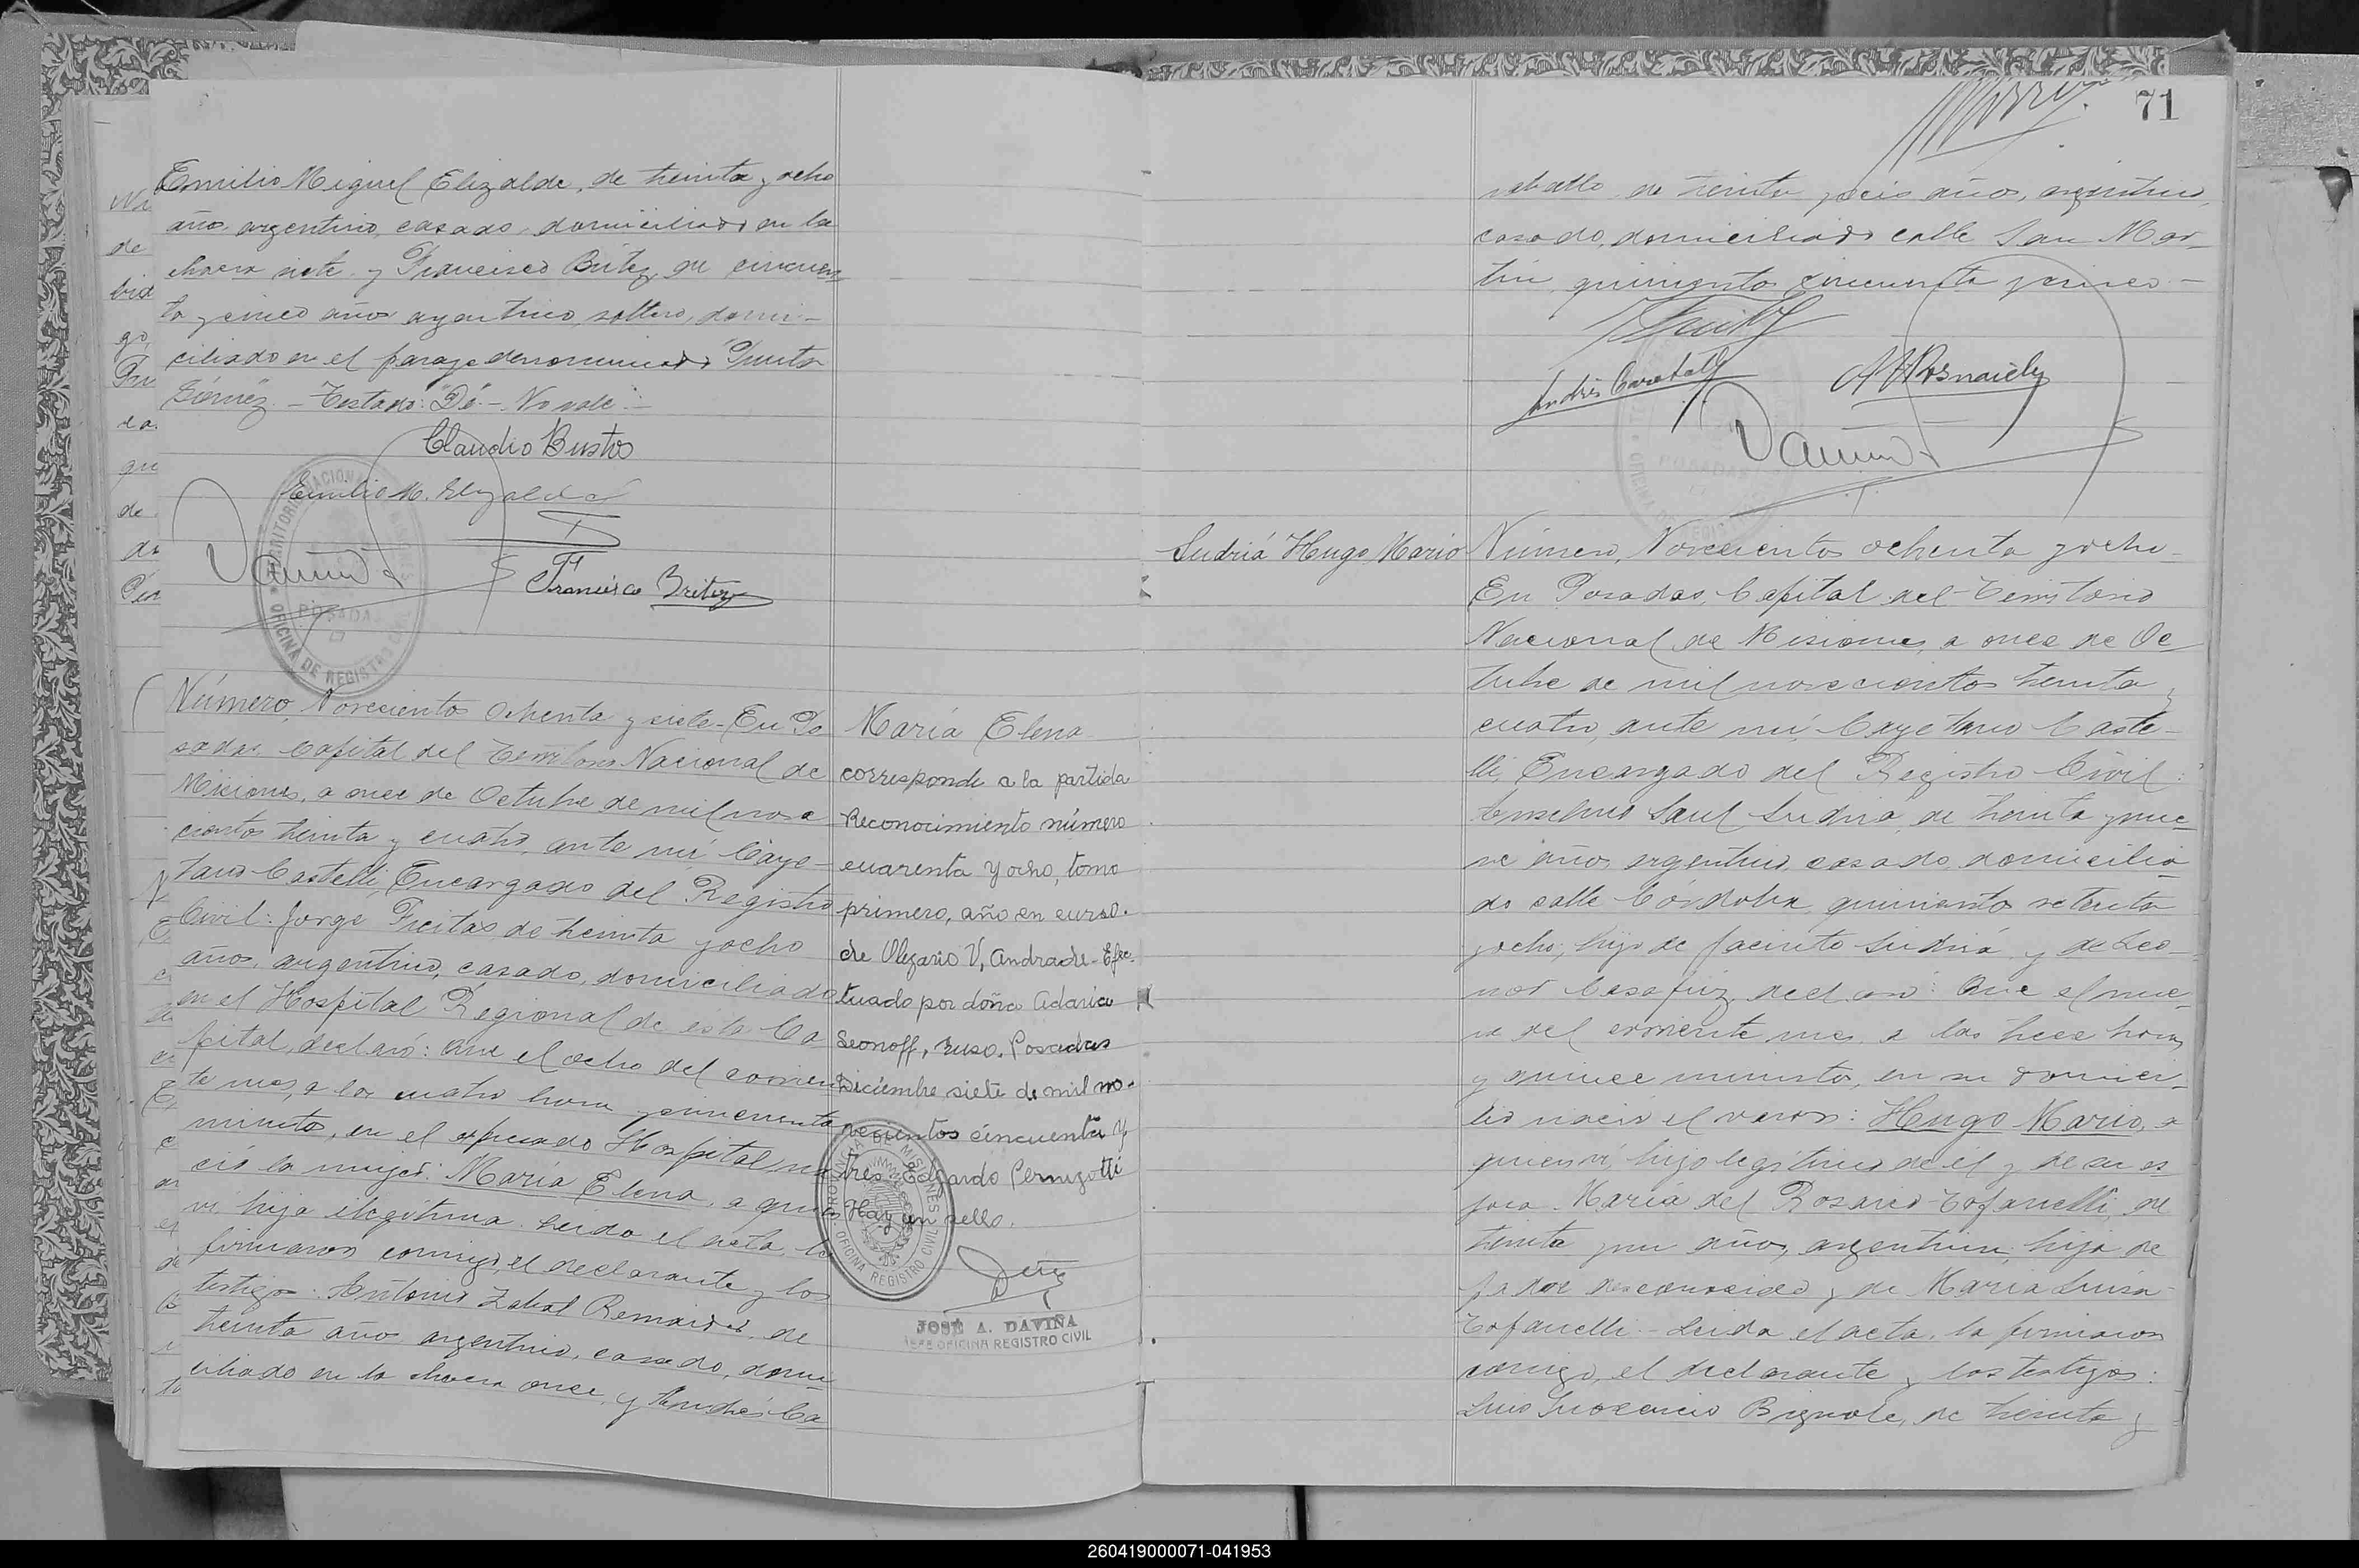 Emilio Miguel Elizalde, de treinta y ocho
años, argentino, casado, domiciliado en la
chacra siete y Francisco Britez, de cincuen-
ta y cinco años, argentino, soltero, domi-
ciliado en el paraje denominado "Quinta
Gómez". - Testado: "Dé" - No vale. -
Claudio Bustos
Emilio M. Elizalde
Francisco Britez
POSADAS
OFICINA DE REGISTRO
Número, Novecientos Ochenta y siete - En Po
sadas, Capital del Territorio Nacional de
Misiones, a once de Octubre de mil nove
cientos treinta y cuatro, ante mí, Caye-
tano Castelli, Encargado del Registro
Civil: Jorge Freitas, de treinta y ocho
años, argentino, casado, domiciliado
en el Hospital Regional de esta Ca
pital, declaró: Que el ocho del corrien-
te mes, a las cuatro horas y cincuenta
minutos, en el expresado Hospital, na
ció la mujer: María Elena, a quien
vi, hija ilegítima. Leída el acta, la
firmaron conmigo, el declarante y los
testigos: Antonio Zabal Remaides, de
treinta años, argentino, casado, domi-
ciliado en la chacra once, y Andrés Ca
María Elena
corresponde a la partida
Reconocimiento número
cuarenta y ocho, tomo
primero, año en curso.
de Olegario V, Andrade - Efec-
tuado por doña Adaria
Leonoff, ruso. Posadas
Diciembre siete de mil no-
vecientos cincuenta y
tres. Edgardo Peruzotti
Hay un sello.
PROVINCIA DE MISIONES
OFICINA REGISTRO CIVIL
JOSÉ A. DAVIÑA
JEFE OFICINA REGISTRO CIVIL
71
de treinta y seis años, argentino,
casado, domiciliado calle San Mar-
tín, quinientos cincuenta y cinco. -
POSADAS
Sudriá Hugo Mario
Número, Novecientos ochenta y ocho -
En Posadas, Capital del Territorio
Nacional de Misiones, a once de Oc
tubre de mil novecientos treinta y
cuatro, ante mí, Cayetano Caste-
lli, Encargado del Registro Civil:
Anselmo Saul Sudriá, de treinta y nue-
ve años, argentino, casado, domicilia-
do calle Córdoba, quinientos setenta
y ocho, hijo de Jacinto Sudriá y de Leo-
nor declaró: Que el nue-
ve del corriente mes, a las trece horas
y quince minutos, en su domici-
lio nació el varón: Hugo Mario, a
quien vi, hijo legítimo de él y de su es
posa María del Rosario Tofanelli, de
treinta y un años, argentina, hija de
padre desconocido y de María Luisa
Tofanelli. - Leída el acta, la firmaron
conmigo, el declarante y los testigos:
Luis Inocencio Bignole, de treinta y
260419000071-041953